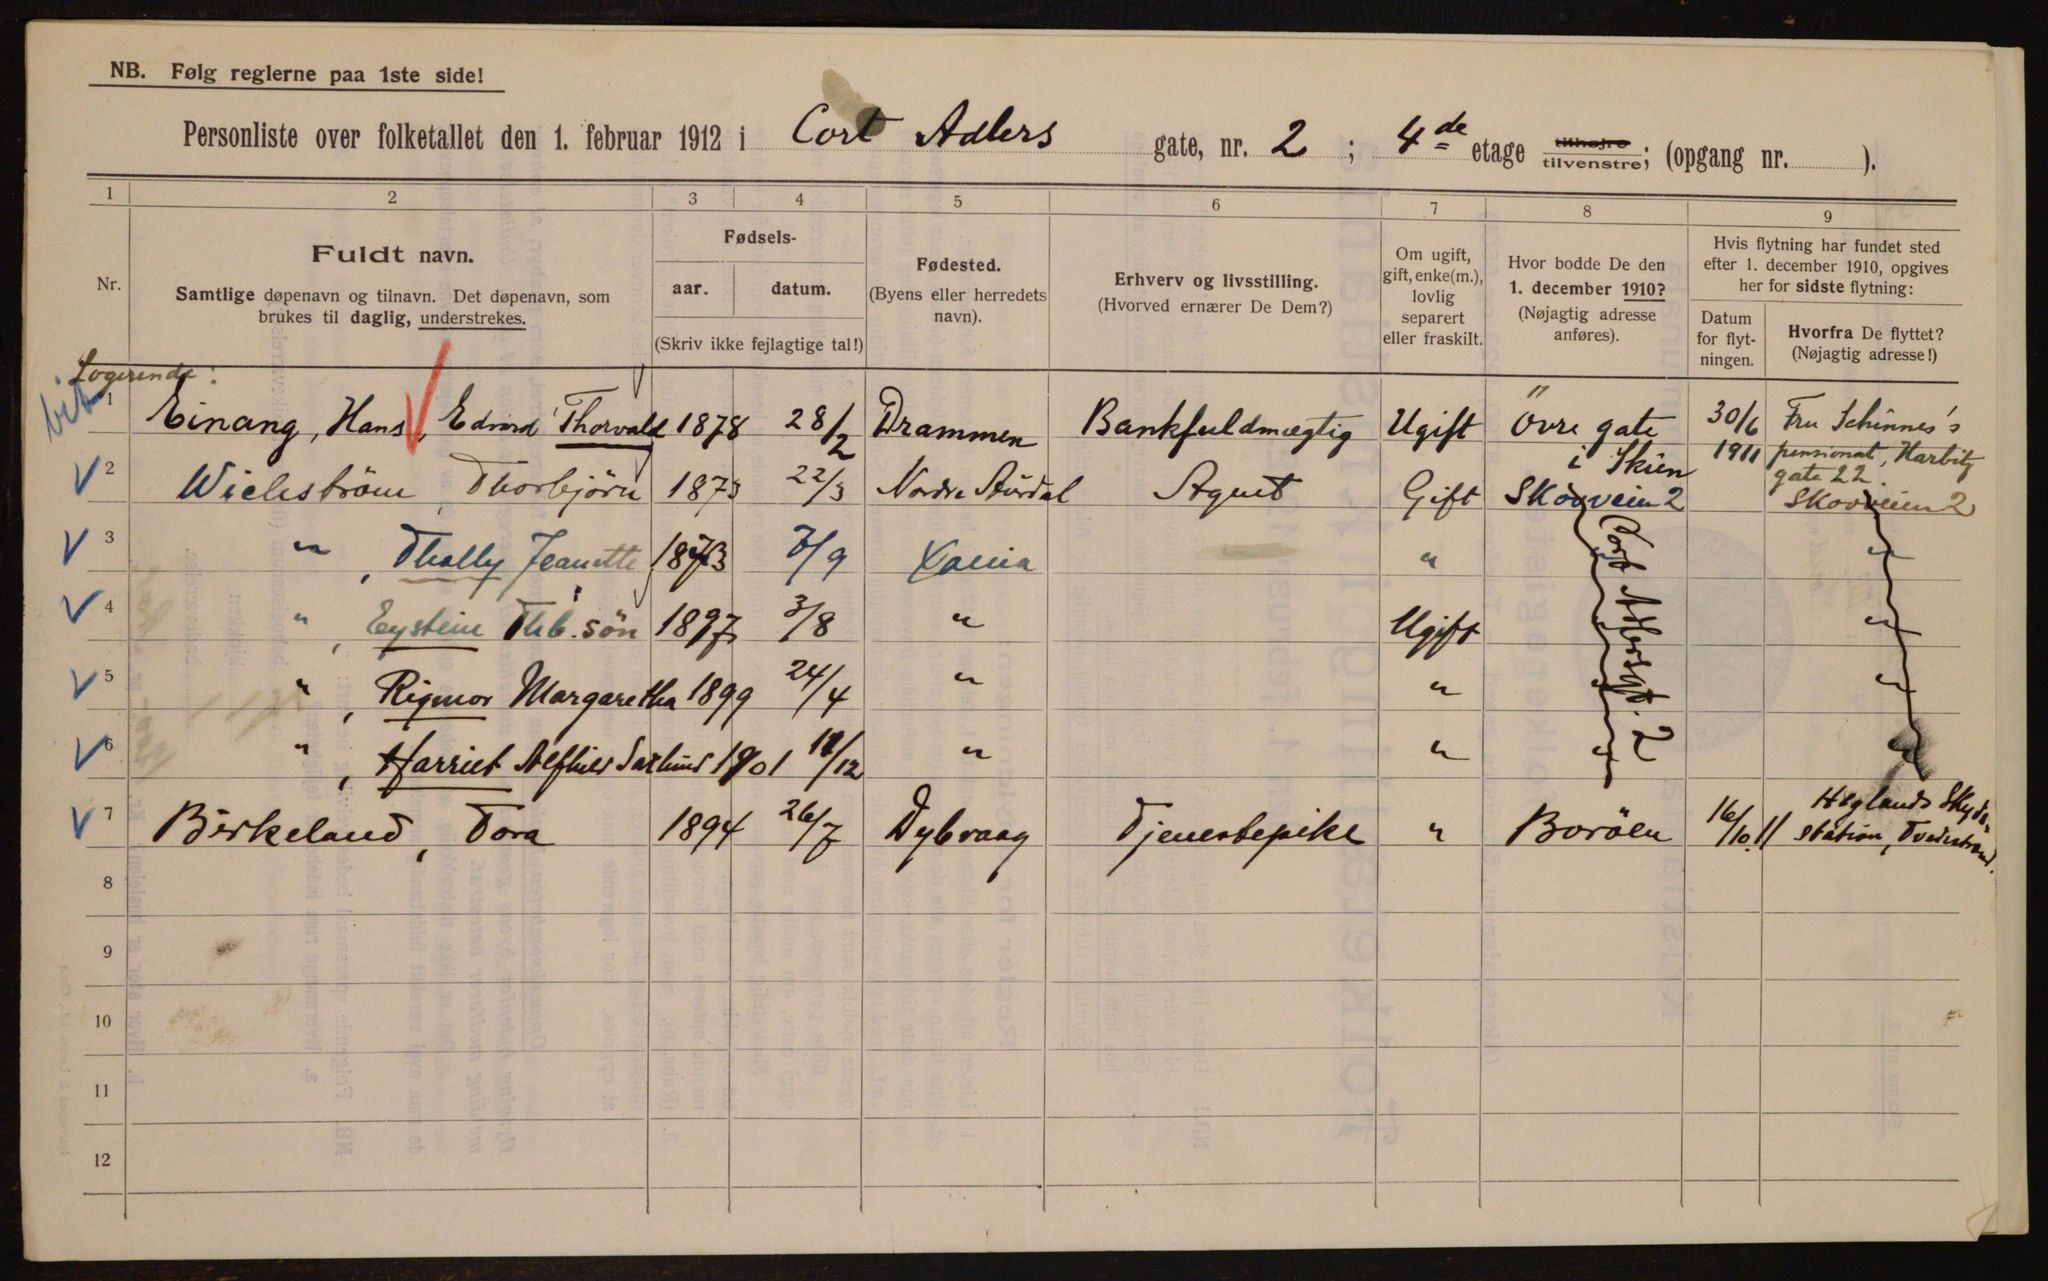 NB. Følg reglerne paa 1ste side!
Personliste over folketallet den 1. februar 1912 i Cort Adlers gate, nr. 2 ; 4de etage tilhøjre tilvenstre; (opgang nr. ).
1 2 3 4 5 6 7 8 9
Nr.
Fuldt navn.
Samtlige døpenavn og tilnavn. Det døpenavn, som
brukes til daglig, understrekes.
Fødsels-
aar. datum.
(Skriv ikke fejlagtige tal!)
Fødested.
(Byens eller herredets
navn).
Erhverv og livsstilling.
(Hvorved ernærer De Dem?)
Om ugift,
gift, enke(m.),
lovlig
separert
eller fraskilt.
Hvor bodde De den
1. december 1910?
(Nøjagtig adresse
anføres).
Hvis flytning har fundet sted
efter 1. december 1910, opgives
her for sidste flytning:
Datum
for flyt-
ningen.
Hvorfra De flyttet?
(Nøjagtig adresse!)
Logerende:
1 Einang, Hans, Edvard Thorvald 1878 28/2 Drammen Bankfuldmægtig Ugift Övre gate i Skien 30/6 1911 Fru Schinnes's pensionat, Harbitz gate 22.
2 Wickström, Thorbjörn 1873 22/3 Nordre Aurdal Agent Gift Skovveien 2 Skovveien 2
3 " , Tholly Jeanette 1873 7/9 Xania " " "
Cort Adlersgt. 2
4 " , Eystein Thb.sön 1897 3/8 " Ugift " "
5 " , Rigmor Margaretha 1899 24/4 " " " "
6 " , Harriet 1901 /12 " " " "
7 Birkeland, Tora 1894 26/7 Dybvaag Tjenestepike " Boröen 16/10 11 Heglands Skyds- station, Tvedestrand.
8
9
10
11
12